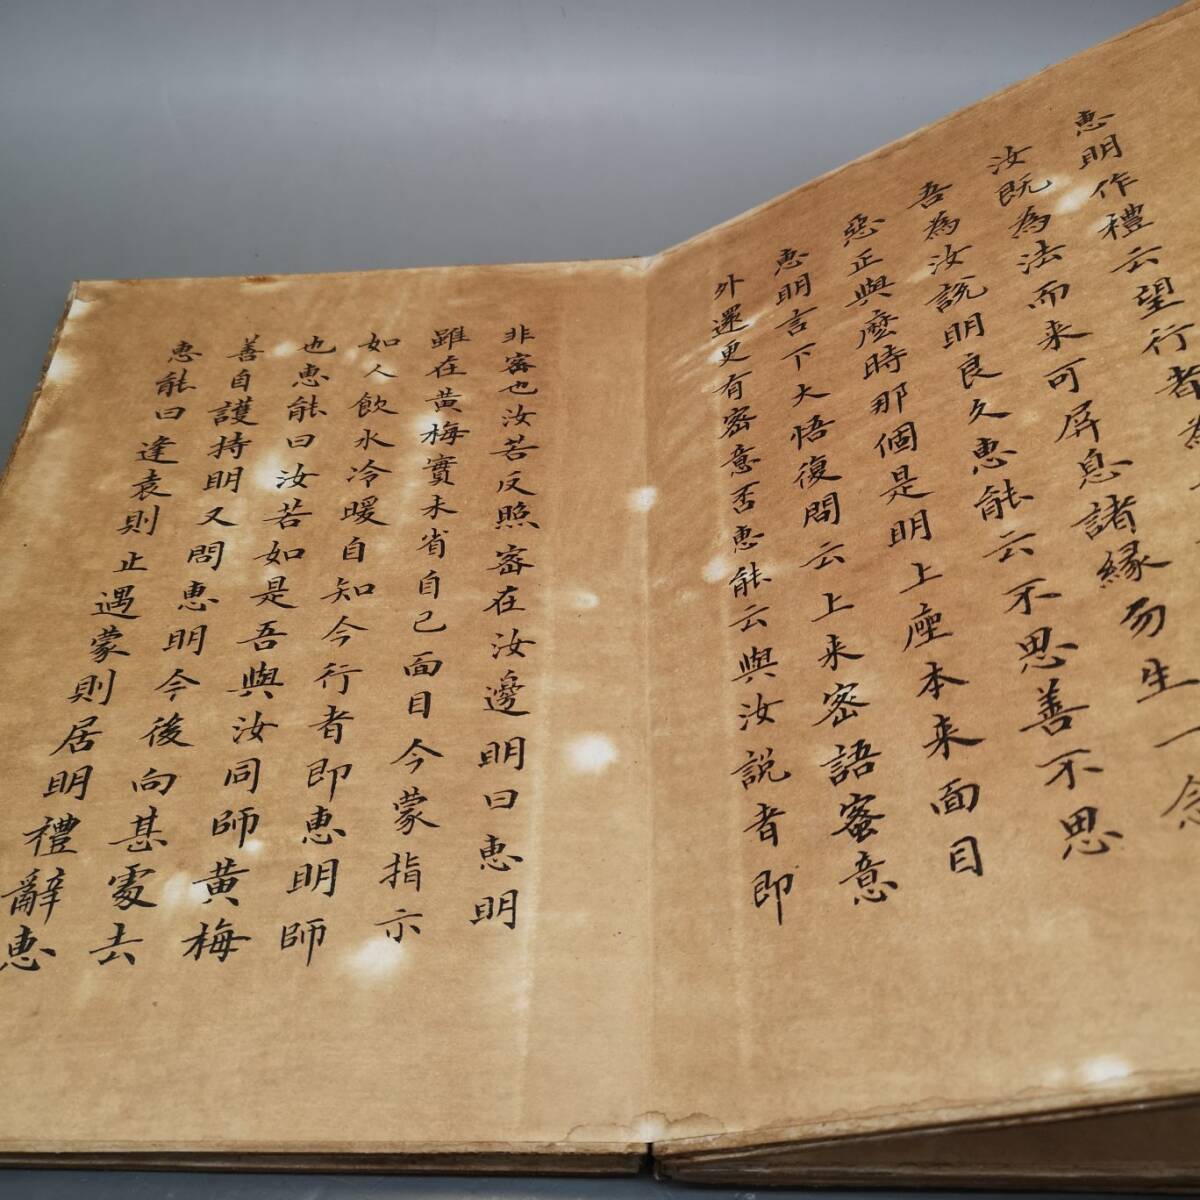 惠明作禮云望行者為
汝既為法而来可屏息諸緣勿生一念
吾為汝說明良久惠能云不思善不思
惡正與麼時那個是明上座本来面目
惠明言下大悟復問云上来密語密意
外還更有密意否惠能云與汝說者即
非密也汝若反照密在汝邊明曰惠明
雖在黃梅實未省自己面目今蒙指示
如人飲水冷暖自知今行者即惠明師
也惠能曰汝若如是吾與汝同師黃梅
善自護持明又問惠明今後向甚處去
惠能曰逢袁則止遇蒙則居明禮辭惠